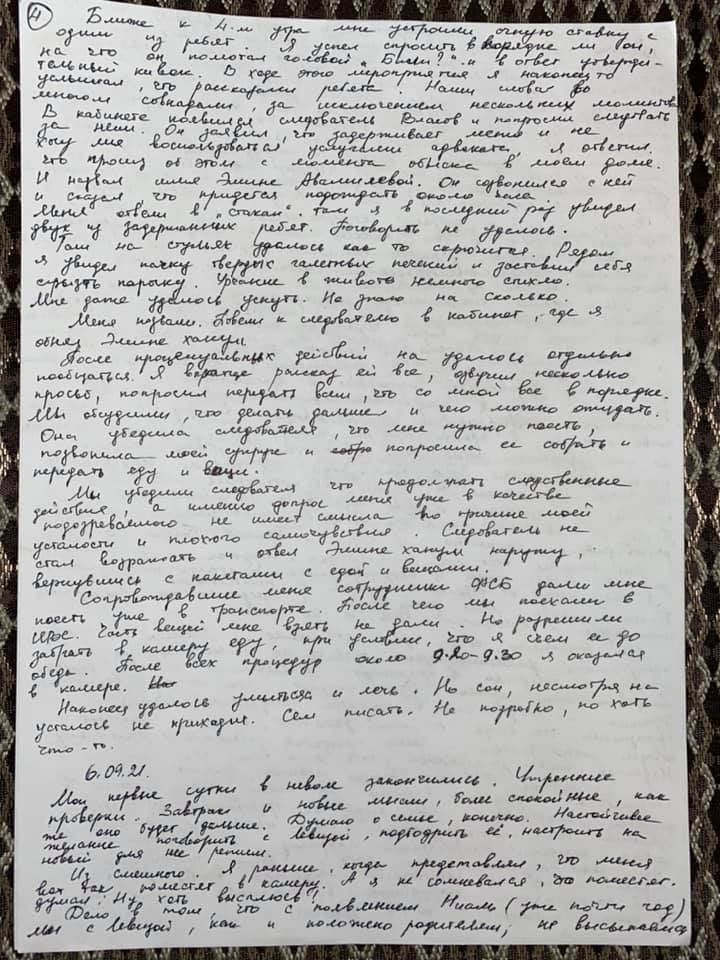 4
Ближе к 4-м утра мне устроили очную ставку с
одим из ребят. Я успел спросить в порядке ли он,
на что он помотал головой „Били?" и в ответ утверди-
тельный кивок. В ходе этого мероприятия я наконец то
услышал, что рассказали ребята. Наши слова во
многом совпадали, за исключением нескольких моментов
В кабинете появился следователь Власов и попросил следовать
за ним. Он заявил, что задерживает меня и не
хочу ли я воспользоваться услугами адвоката. Я ответил,
что прошу об этом с момента обыска в моём доме.
И назвал имя Эмине Авамилевой. Он созвонился с ней
и сказал, что придется подождать около часа.
Меня отвели в „стакан". Там я в последний раз увидел
двух из задержанных ребят. Поговорить не удалось.
Там на стульях удалось как то скрючится. Рядом
я увидел пачку твердых галетных печений и заставил себя
сгрызть парочку. Урчание в животе немного стихло.
Мне даже удалось уснуть. Не знаю на сколько.
Меня позвали. Повели к следователю в кабинет, где я
обнял Эмине ханум.
После процессуальных действий на удалось отдельно
пообщаться. Я вкратце рассказ ей все, озвучил несколько
просьб, попросил передать всем, что со мной все в порядке.
Мы обсудили, что делать дальше и чего можно ожидать.
Она убедила следователя, что мне нужно поесть,
позвонила моей супруге и попросила ее собрать и
передать еду и вещи.
Мы убедили следователя что продолжать следственные
действия, а именно допрос меня уже в качестве
подозреваемого не имеет смысла по причине моей
усталости и плохого самочувствия. Следователь не
стал возражать и отвел Эмине ханум наружу,
вернувшись с пакетами с едой и вещами.
Сопровождавшие меня сотрудники ФСБ дали мне
поесть уже в транспорте. После чего мы поехали в
Часть вещей мне взять не дали. Но разрешили
забрать в камеру еду, при условии, что я съем ее до
обеда. После всех процедур около 9.20-9.30 я оказался
в камере.
Наконец удалось умыться и лечь. Но сон, несмотря на
усталось не приходил. Сел писать. Не подробно, но хоть
что-то.
6.09.21.
Мои первые сутки в неволе закончились. Утренние
проверки. Завтрак и новые мысли, более спокойные, как
же оно будет дальше. Думаю о семье, конечно. Настойчивее
желание поговорить с Левизой, подбодрить её, настроить на
новый для нее режим.
Из смешного. Я раньше, когда представлял, что меня
вот так поместят в камеру. А я не сомневался, что поместят.
думал: Ну хоть высплюсь!
Дело в том, что с появлением Ниаль (уже почти год)
мы с Левизой, как и положено родителям, не высыпаемся